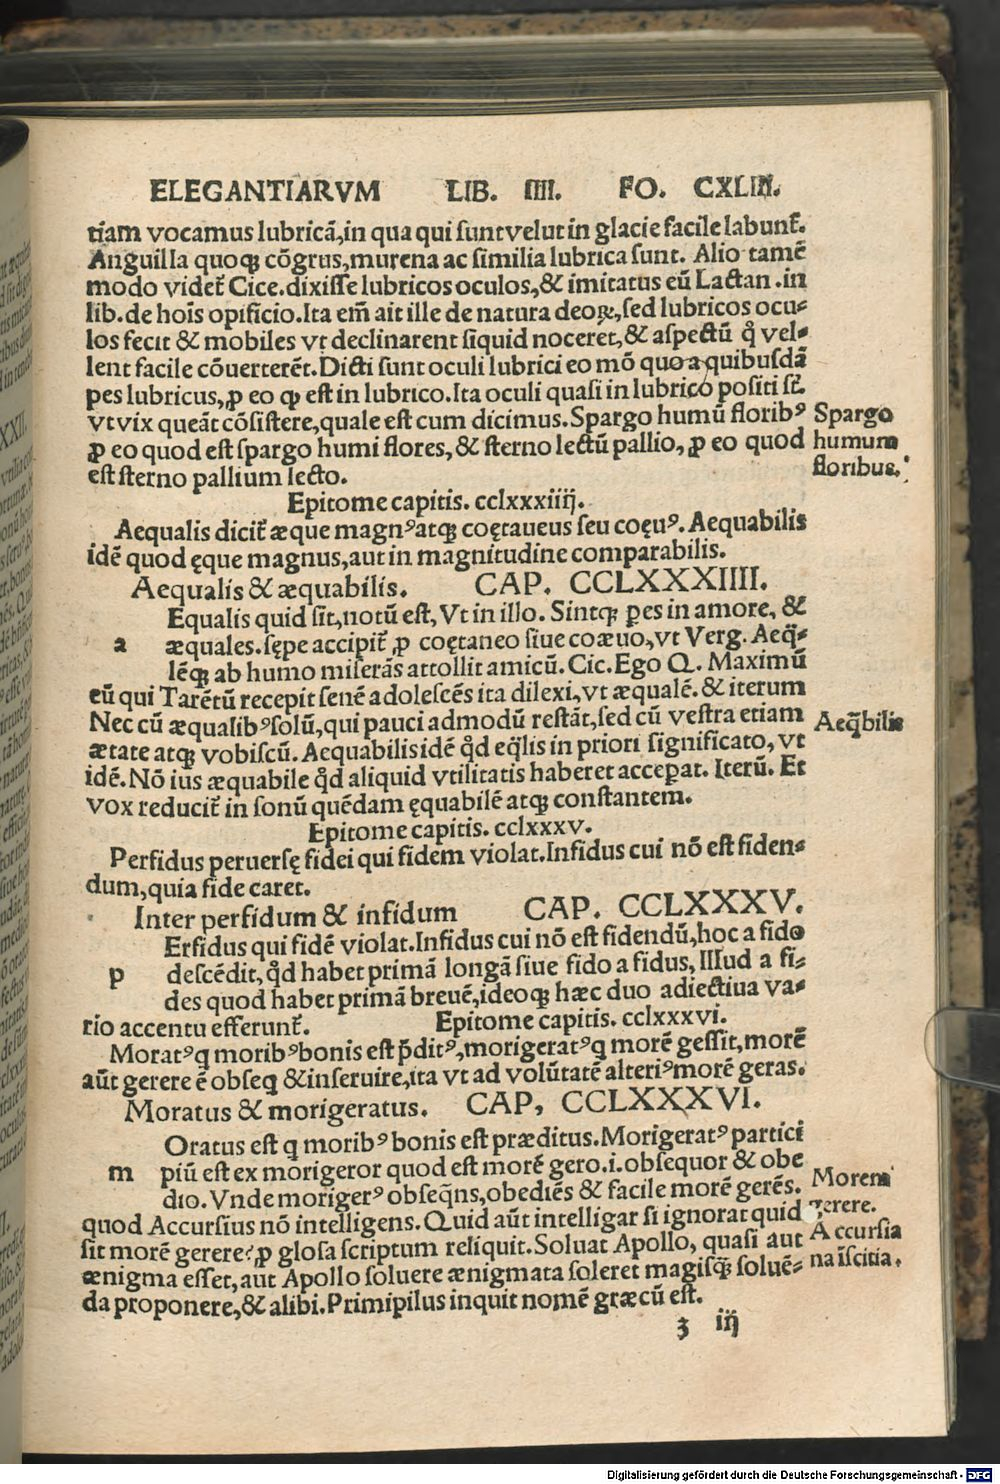 ELEGANTIARVM LIB. IIII. FO. CXLIII.
tiam vocamus lubricã, in qua qui sunt velut in glacie facile labunt᷑.
Anguilla quoqꝫ cõgrus, murena ac similia lubrica sunt. Alio tamẽ
modo videt᷑ Cice. dixisse lubricos oculos, & imitatus eũ Lactan. in
lib. de hoĩs opificio. Ita em̃ ait ille de natura deoꝝ, sed lubricos ocu⸗
los fecit & mobiles vt declinarent siquid noceret, & aspectũ qͦ vel⸗
lent facile cõuerterẽt. Dicti sunt oculi lubrici eo mõ quo a quibusdã
pes lubricus, ꝓ eo ꝙ est in lubrico. Ita oculi quasi in lubrico positi sẽ
vt vix queãt cõsistere, quale est cum dicimus. Spargo humũ floribꝰ
ꝓ eo quod est spargo humi flores, & sterno lectũ pallio, ꝓ eo quod
est sterno pallium lecto.
Spargo
humum
floribus.
Epitome capitis. cclxxxiiij.
Aequalis dicit᷑ æque magnꝰ atqꝫ coętaueus seu coęuꝰ. Aequabilis
idẽ quod ęque magnus, aut in magnitudine comparabilis.
Aequalis & æquabilis. CAP. CCLXXXIIII.
Equalis quid sit, notũ est, Vt in illo. Sintqꝫ ꝑes in amore, &
a æquales. sępe accipit᷑ ꝓ coętaneo siue coæuo, vt Verg. Aeq̃⸗
lẽqꝫ ab humo miserãs attollit amicũ. Cic. Ego Q. Maximũ
eũ qui Tarẽtũ recepit senẽ adolescẽs ita dilexi, vt æqualẽ. & iterum
Nec cũ æqualibꝰ solũ, qui pauci admodũ restãt, sed cũ vestra etiam
ætate atqꝫ vobiscũ. Aequabilis idẽ qͦd eq̃lis in priori significato, vt
idẽ. Nõ ius æquabile qͦd aliquid vtilitatis haberet acceꝑat. Iterũ. Et
vox reducit᷑ in sonũ quẽdam ęquabilẽ atqꝫ constantem.
Aeq̃bilis
Epitome capitis. cclxxxv.
Perfidus peruersę fidei qui fidem violat. Infidus cui nõ est fiden⸗
dum, quia fide caret.
Inter perfidum & infidum CAP. CCLXXXV.
Erfidus qui fidẽ violat. Infidus cui nõ est fidendũ, hoc a fido
p descẽdit, qͦd habet primã longã siue fido a fidus, Illud a fi⸗
des quod habet primã breuẽ, ideoqꝫ hæc duo adiectiua va⸗
rio accentu efferunt᷑. Epitome capitis. cclxxxvi.
Moratꝰ q moribꝰ bonis est p̃ditꝰ, morigeratꝰ q morẽ gessit, morẽ
aũt gerere ẽ obseq & inseruire, ita vt ad volũtatẽ alteriꝰ morẽ geras.
Moratus & morigeratus. CAP, CCLXXXVI.
Oratus est q moribꝰ bonis est præditus. Morigeratꝰ partici
m piũ est ex morigeror quod est morẽ gero. i. obsequor & obe
dio. Vnde morigerꝰ obseq̃ns, obediẽs & facile morẽ gerẽs.
quod Accursius nõ intelligens. Quid aũt intelligar si ignorat quid
sit morẽ gerere? ꝓ glosa scriptum reliquit. Soluat Apollo, quasi aut
ænigma esset, aut Apollo soluere ænigmata soleret magisqꝫ soluẽ⸗
da proponere, & alibi. Primipilus inquit nomẽ græcũ est.
Morem
gerere.
Accursia
na ĩscitia.
ʒ iij
Digitalisierung gefördert durch die Deutsche Forschungsgemeinschaft - DFG